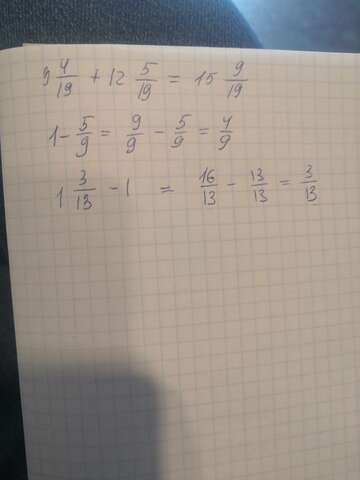 3 4/19 + 12 5/19 = 15 9/19
1 - 5/9 = 9/9 - 5/9 = 4/9
1 3/13 - 1 = 16/13 - 13/13 = 3/13